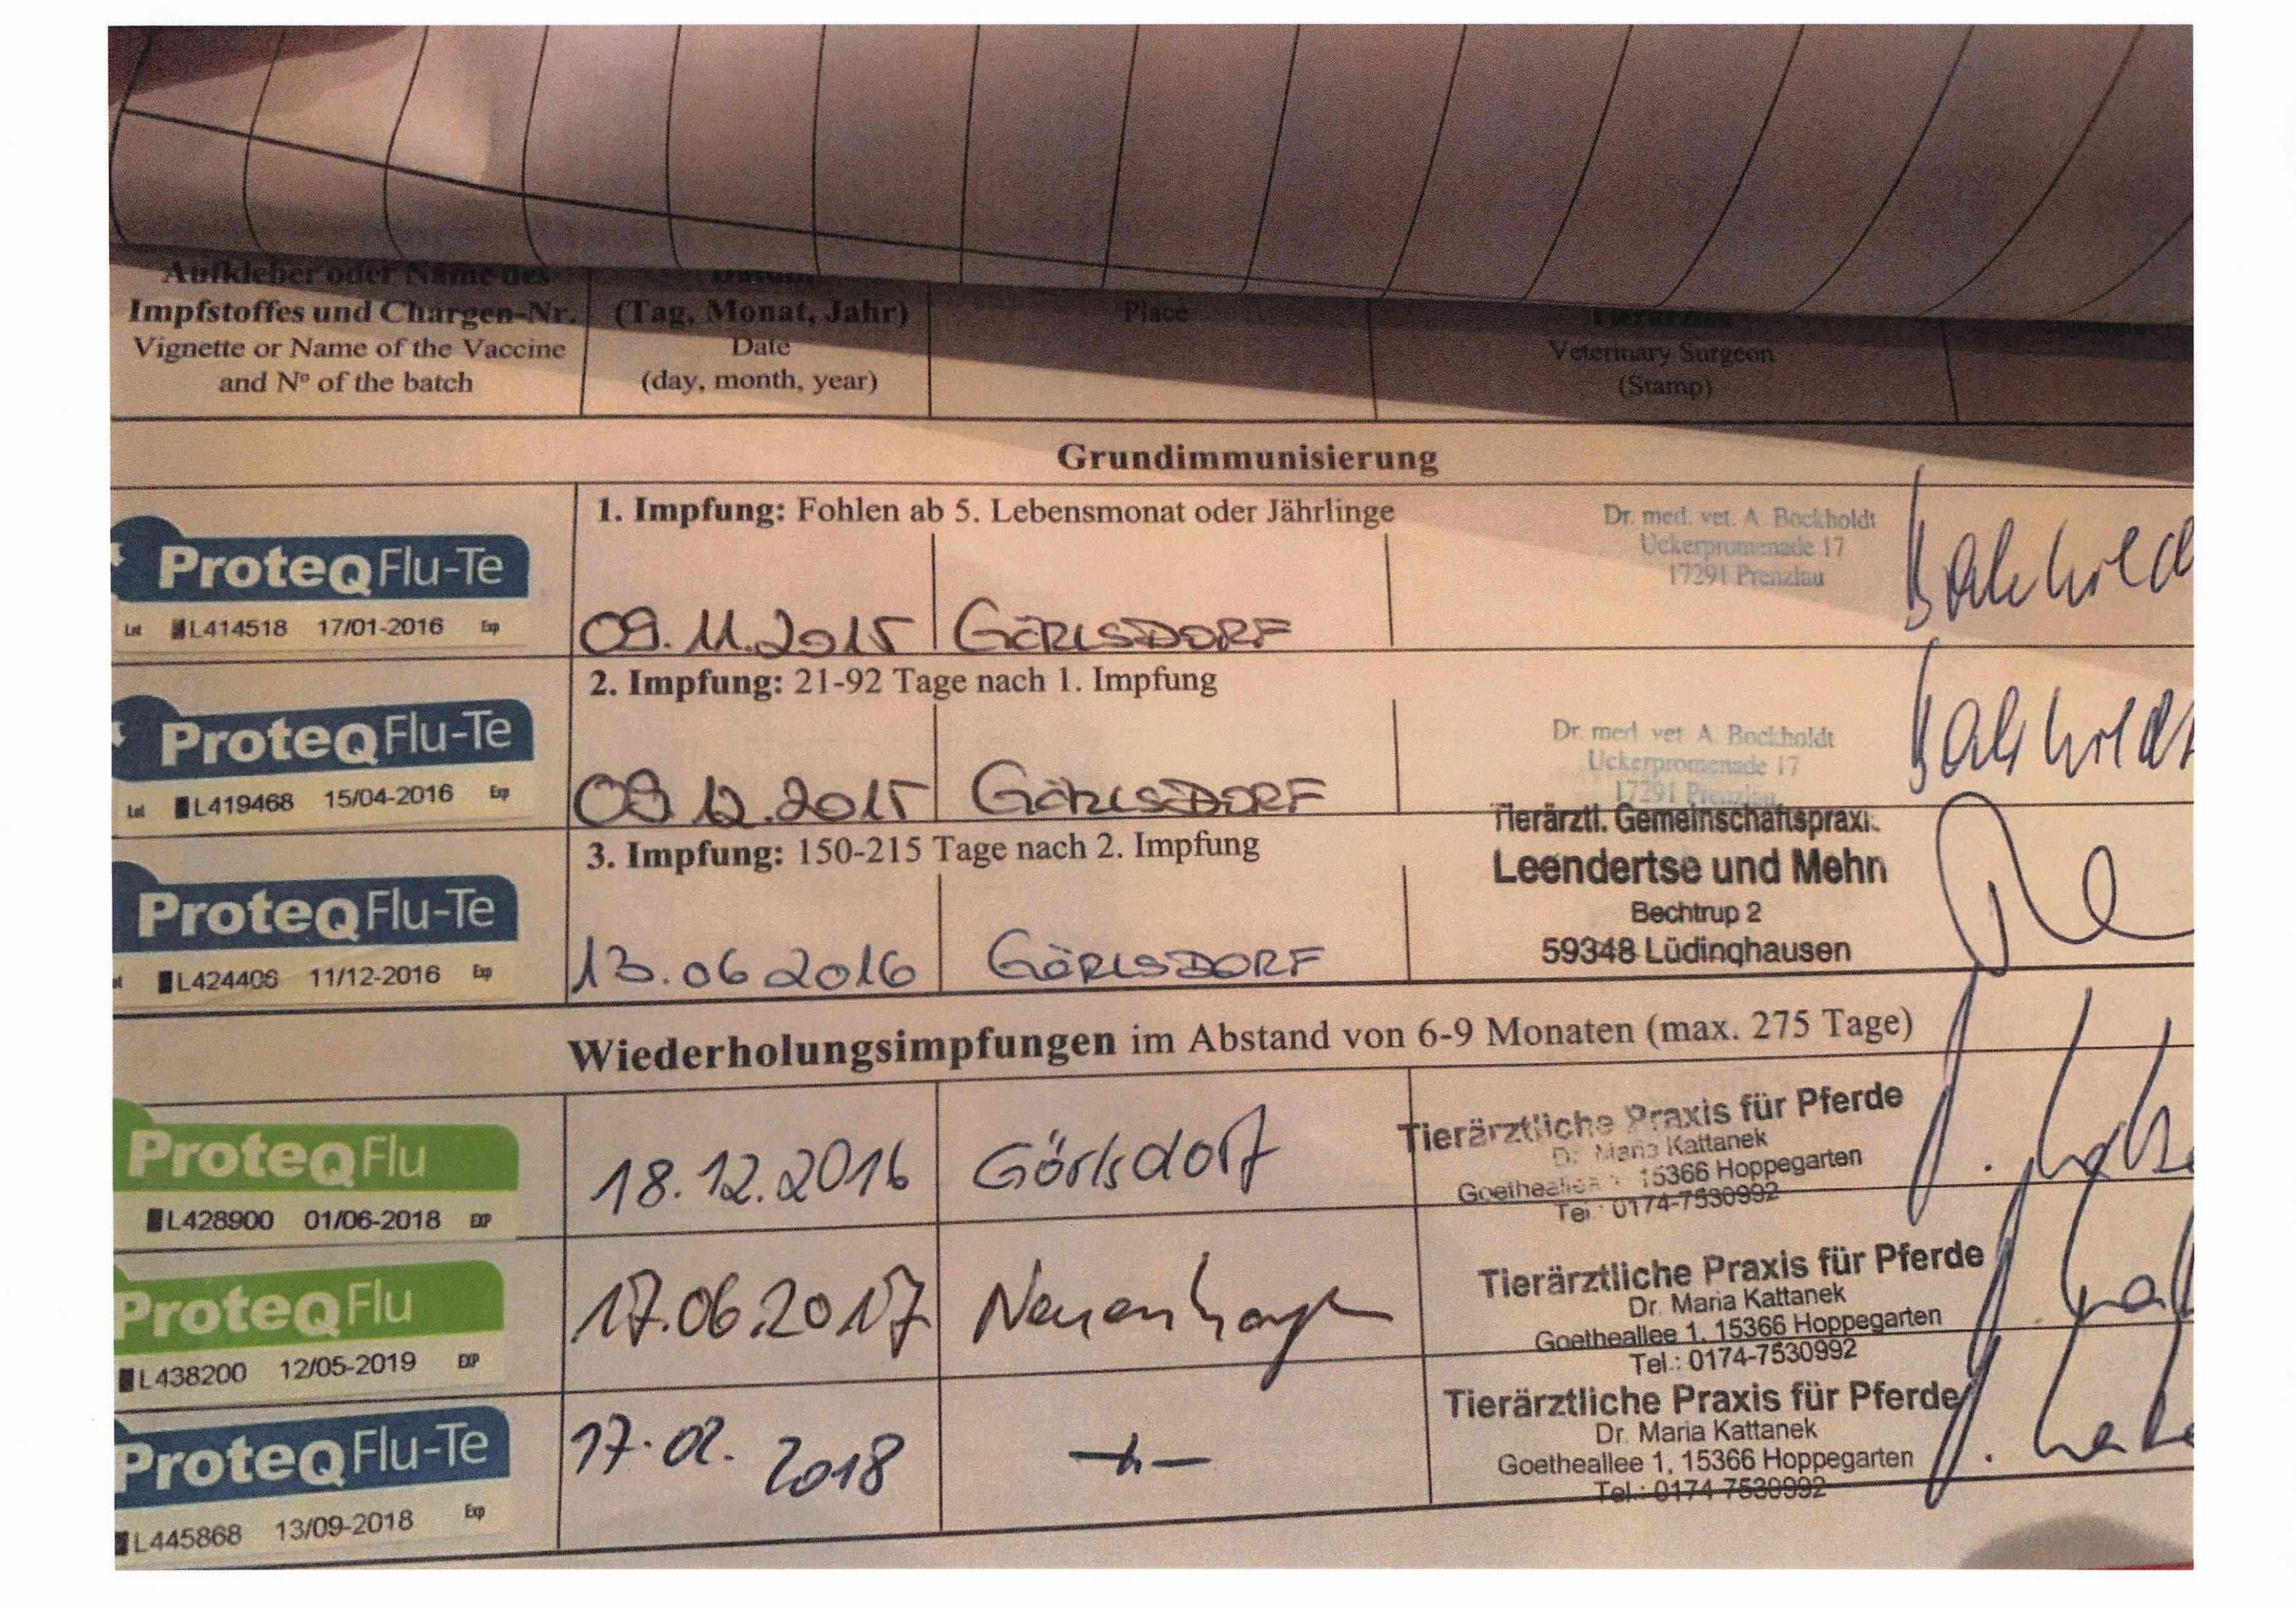 Aufkleber oder Name des
Impfstoffes und Chargen-Nr.
Vignette or Name of the Vaccine
and Nº of the batch
(Tag, Monat, Jahr)
Date
(day, month, year)
Place
Veterinary Surgeon
(Stamp)
Grundimmunisierung
1. Impfung: Fohlen ab 5. Lebensmonat oder Jährlinge
ProteqFlu-Te
Lot L414518 17/01-2016 Exp
09.11.2015
GÖRLSDORF
Dr. med. vet. A. Bockholdt
Uckerpromenade 17
17291 Prenzlau
2. Impfung: 21-92 Tage nach 1. Impfung
ProteqFlu-Te
Lot L419468 15/04-2016 Exp
09.12.2015
GÖRLSDORF
Dr. med. vet. A. Bockholdt
Uckerpromenade 17
17291 Prenzlau
3. Impfung: 150-215 Tage nach 2. Impfung
ProteqFlu-Te
L424406 11/12-2016 Exp
13.06.2016
GÖRLSDORF
Tierärztl. Gemeinschaftspraxi.
Leendertse und Mehn
Bechtrup 2
59348 Lüdinghausen
Wiederholungsimpfungen im Abstand von 6-9 Monaten (max. 275 Tage)
ProteqFlu
L428900 01/06-2018 EXP
18.12.2016
Görlsdorf
Tierärztliche Praxis für Pferde
Dr. Maria Kattanek
Goetheallee 1, 15366 Hoppegarten
Tel.: 0174-7530992
ProteqFlu
L438200 12/05-2019 EXP
17.06.2017
Neuenhagen
Tierärztliche Praxis für Pferde
Dr. Maria Kattanek
Goetheallee 1, 15366 Hoppegarten
Tel.: 0174-7530992
ProteqFlu-Te
L445868 13/09-2018 Exp
17.02. 2018
Tierärztliche Praxis für Pferde
Dr. Maria Kattanek
Goetheallee 1, 15366 Hoppegarten
Tel.: 0174-7530992